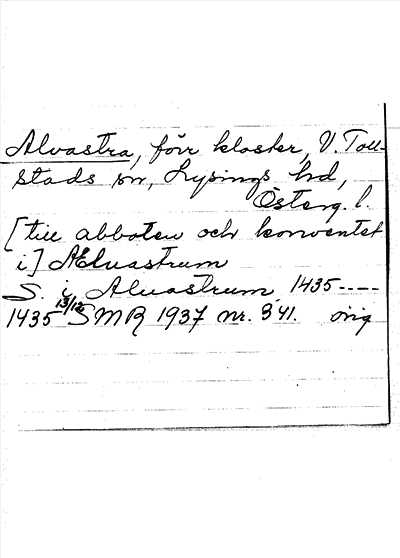 Alvastra, förr kloster, V. Toll-
stads sn, Lysings hd,
Österg. l.
[till abboten och konventet
i] Ælvastrum
S. i Alvastrum, 1435----
1435 13/12 SMR 1937 nr. 341. orig